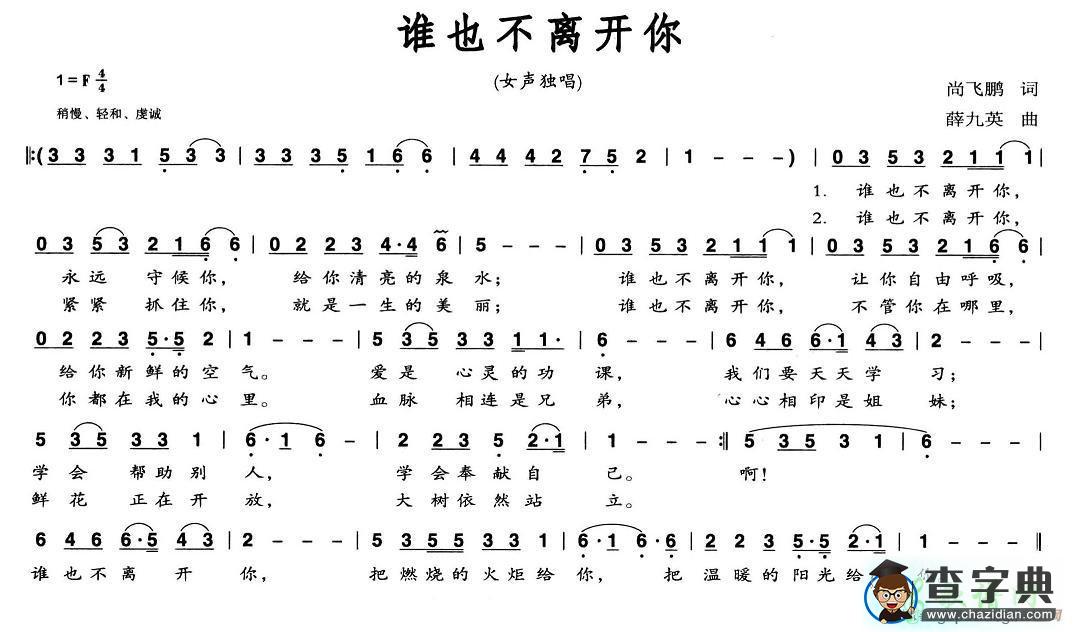 谁也不离开你
(女声独唱)
1=F 4/4
尚飞鹏 词
稍慢、轻和、虔诚
薛九英 曲
‖:(3 3 3 1 5 5 3 3 | 3 3 3 5 1 6 6 | 4 4 4 2 7 5 2 | 1 - - -) | 0 3 5 3 2 1 1 1 |
1. 谁也不离开你，
2. 谁也不离开你，
0 3 5 3 2 1 6 6 | 0 2 2 3 4·4 6 | 5 - - - | 0 3 5 3 2 1 1 1 | 0 3 5 3 2 1 6 6 |
永远 守候你， 给你清亮的泉水； 谁也不离开你， 让你自由呼吸，
紧紧 抓住你， 就是一生的美丽； 谁也不离开你， 不管你在哪里，
0 2 2 3 5·5 2 | 1 - - - | 5 3 5 3 3 1 1· | 6 - - - | 6 4 6 6·1 4 3 | 2 - - - |
给你新鲜的空气。 爱是 心灵的功课， 我们要天天学习；
你都在我的心里。 血脉 相连是兄弟， 心心相印是姐妹；
5 3 5 3 3 1 | 6·1 6 - | 2 2 3 5 2·1 | 1 - - - :‖ 5 3 5 3 1 | 6 - - - |
学会 帮助别人， 学会奉献自己。 啊！
鲜花 正在开放， 大树依然站立。
6 4 6 6·5 4 3 | 2 - - - | 5 3 5 5 3 3 1 | 6·1 6·6 | 2 2 3 5·5 2·1 | 1 - - - ‖
谁也不离开你， 把燃烧的火炬给你， 把温暖的阳光给
查字典
www.chazidian.com